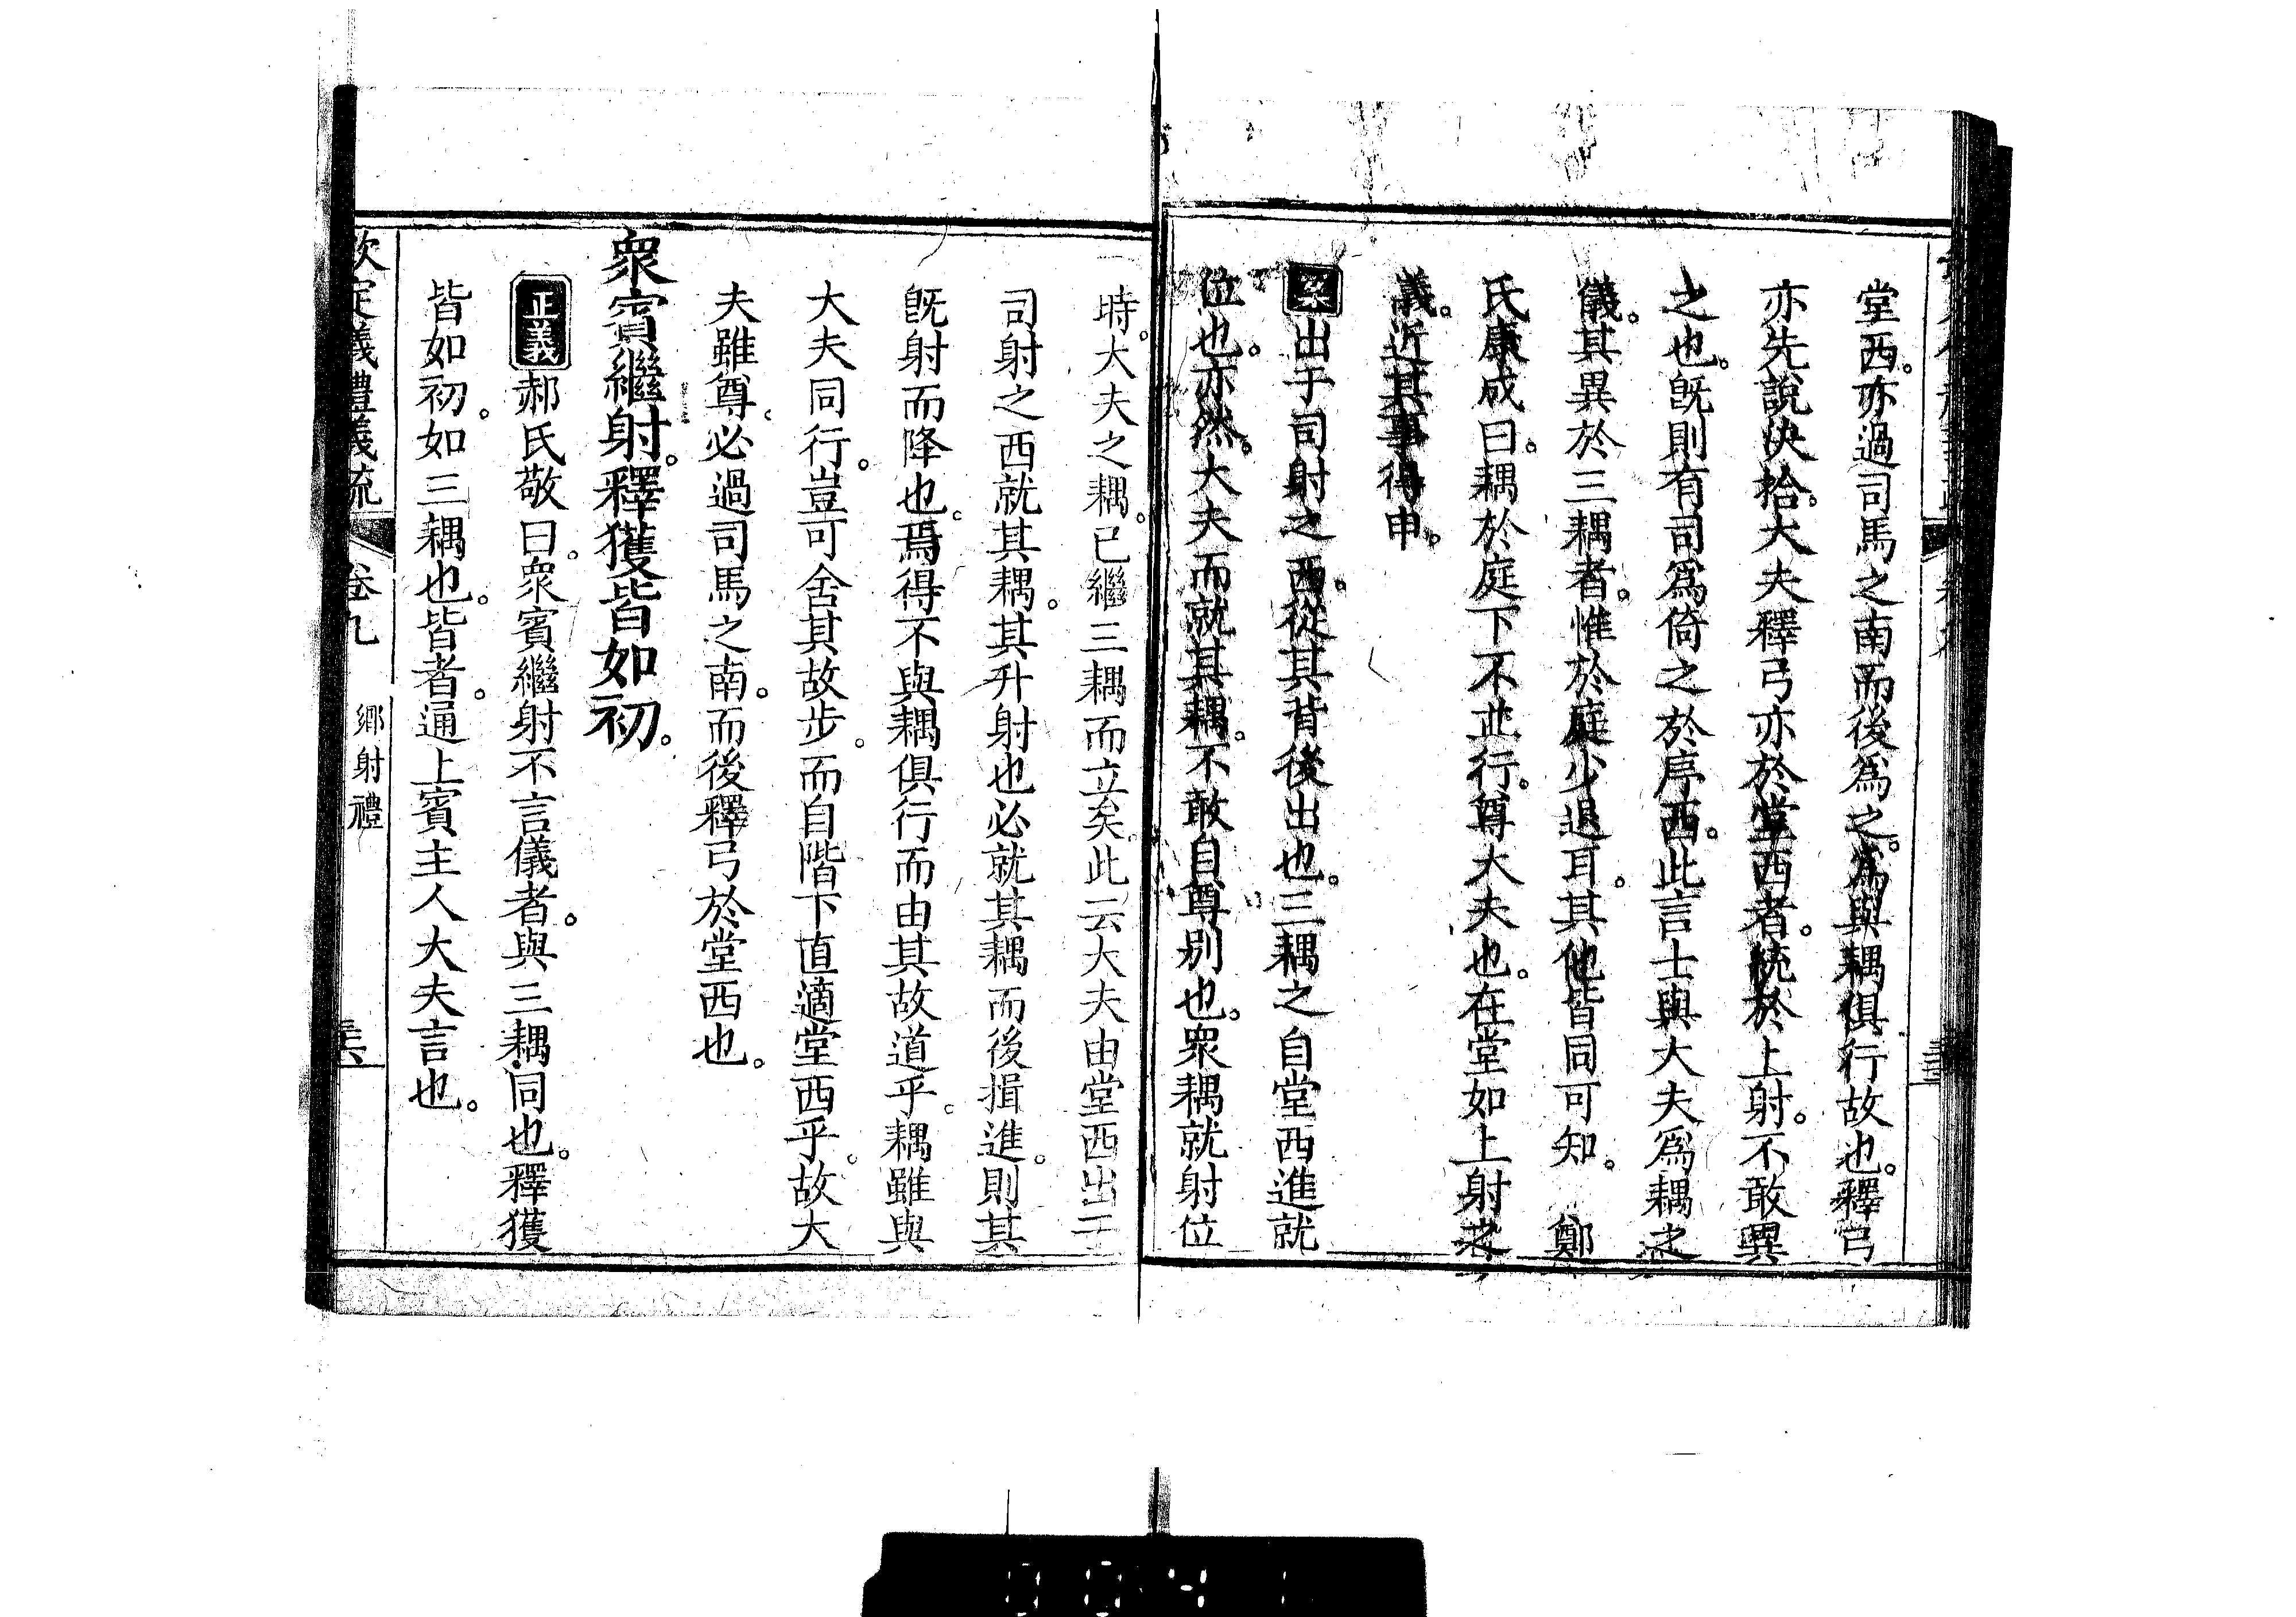 堂西。亦過司馬之南而後爲之。爲與耦俱行故也。釋弓
亦先說決拾。大夫釋弓亦於堂西者。統於上射。不敢異
之也。旣則有司爲倚之於序西。此言士與大夫爲耦之
儀。其異於三耦者。惟於庭少退耳。其他皆同可知。 鄭
氏康成曰。耦於庭下不竝行。尊大夫也。在堂如上射之
儀。近其事得申。
案出于司射之西。從其背後出也。三耦之自堂西進就
位也。亦然。大夫而就其耦。不敢自尊別也。眾耦就射位
時。大夫之耦。已繼三耦而立矣。此云大夫由堂西出于
司射之西就其耦。其升射也必就其耦而後揖進。則其
旣射而降也。焉得不與耦俱行而由其故道乎。耦雖與
大夫同行。豈可舍其故步。而自階下直適堂西乎。故大
夫雖尊。必過司馬之南。而後釋弓於堂西也。
眾賓繼射。釋獲皆如初。
正義郝氏敬曰。眾賓繼射不言儀者。與三耦同也。釋獲
皆如初。如三耦也。皆者。通上賓主人大夫言也。
欽定儀禮義疏 卷九 鄉射禮